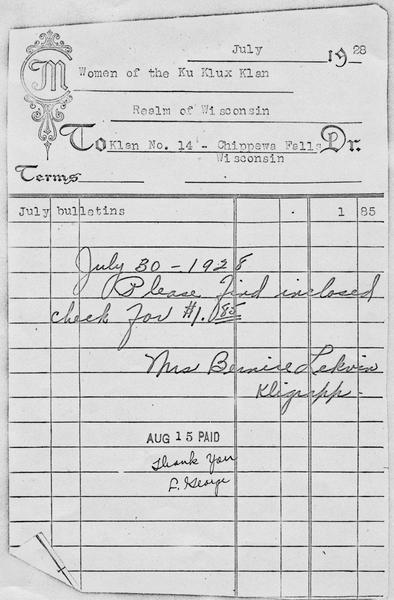 M
July 1928
Women of the Ku Klux Klan
Realm of Wisconsin
To Klan No. 14 - Chippewa Falls Dr.
Wisconsin
Terms
July bulletins 1 85
July 30 - 1928
Please find inclosed
check for $1.85
Mrs Bernice Lekvin
Kligrapp.
AUG 15 PAID
Thank You
L. George